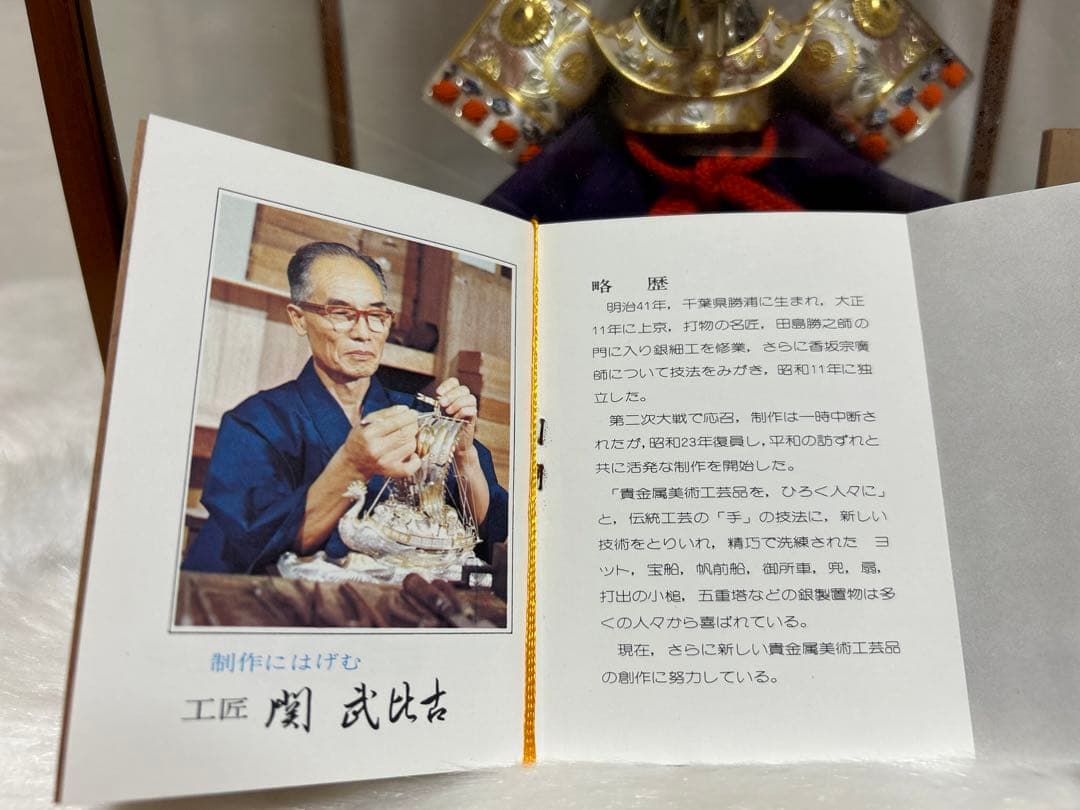 制作にはげむ
工匠 関 武比古
略 歴
明治41年，千葉県勝浦に生まれ，大正
11年に上京，打物の名匠，田島勝之師の
門に入り銀細工を修業，さらに香坂宗廣
師について技法をみがき，昭和11年に独
立した。
第二次大戦で応召，制作は一時中断さ
れたが，昭和23年復員し，平和の訪ずれと
共に活発な制作を開始した。
「貴金属美術工芸品を，ひろく人々に」
と，伝統工芸の「手」の技法に，新しい
技術をとりいれ，精巧で洗練された ヨ
ット，宝船，帆前船，御所車，兜，扇，
打出の小槌，五重塔などの銀製置物は多
くの人々から喜ばれている。
現在，さらに新しい貴金属美術工芸品
の創作に努力している。